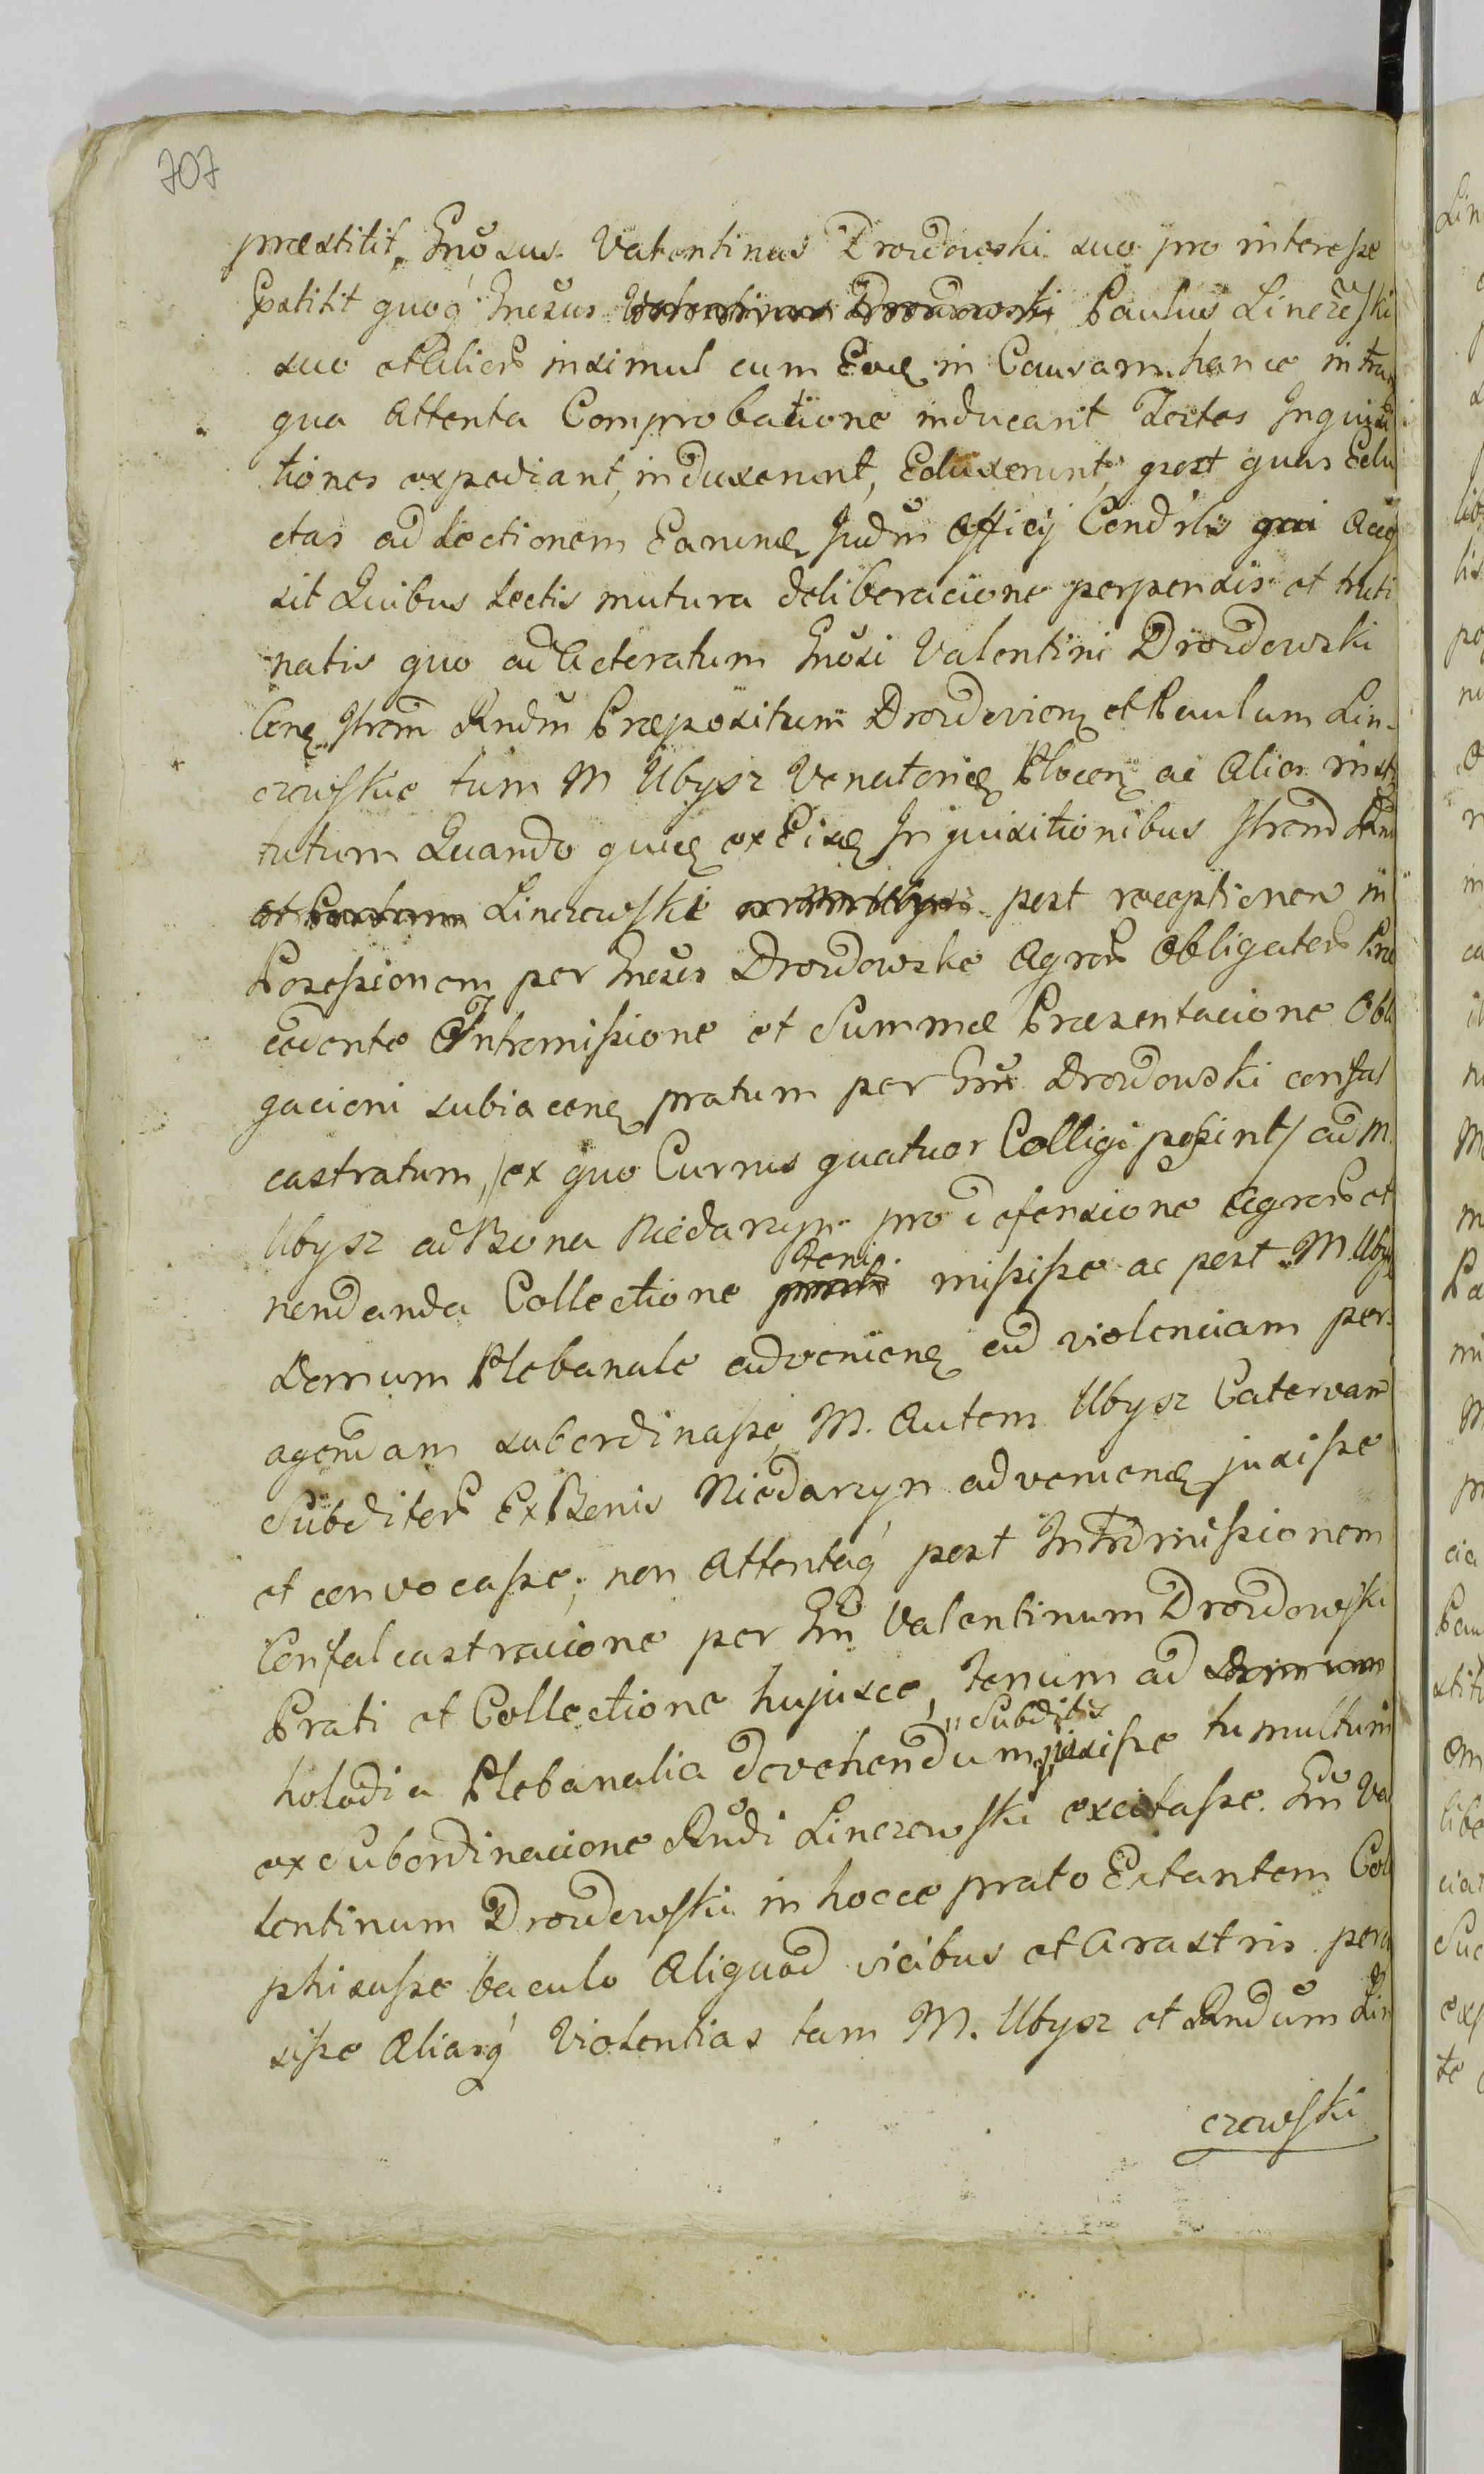 707
præstitit, Gnõsus Valentinus Drozdowski suo pro interesse
Extitit quoq́ Gnesus Valentinus Drozdowski Paulus Linczeski
suo et Alior̃ insimul cum Eoꝝ in Causam hance
qua Attenta Comprobatione inducant Testes Inquisi
tiones expediant, induxerunt, Eduxerunt, post quas Edu
ctas ad lectionem Earumꝗ Judm̃ Officÿ Cond
sit Quibus Lectis mutura deliberacione perpensis et truti
natis quo ad Acteratum Gnõsi Valentini Drozdowski
Conꝗ Præpositum et Paulum Lin-
czewskie tum M Ubysz Venatoriꝗ Plocenꝗ ac Alios insti
tutum Quando ex Inquisitionibus
Linczewski post receptionem in
Possessionem per Gnesus Drozdowskie Agror̃ Obligator̃ Præ
cedente Intromissione et Summæ Præsentacione Obli
gacioni subiacenꝗ pratum per Gnũ Drozdowski confal
castratum, /ex quo Currus quatuor Colligi possint/ ad M.
Ubysz ad Bona Niedarzyn pro defensione Agror̃ et
nendanda Collectione foeni mississe ac post M. Ubysz
Domum Plebanale advenienꝗ ad violenciam per-
agendam subordinasse, M. Autem Ubysz Catervam
Subditor̃ Ex Bonis Niedarzyn advenienꝗ jussisse
et convocasse; non Attentaq́ post Intromissionem
Confalcastracione per Gnũ Valentinum Drozdowski
Prati et Collectione hujusce, Fenum ad
holodia Plebanalia devehendum "Subditis jussisse tumultum
ex Subordinacione Rũdi Linczewski excitasse. Gnũ Va
lentinum Drozdewski in hocce prato Extantem Col
phisasse baculo Aliquod vicibus et Arastris percu
sisse Aliasq́ Violentias tam M. Ubysz et Rndũm Lin
czewski